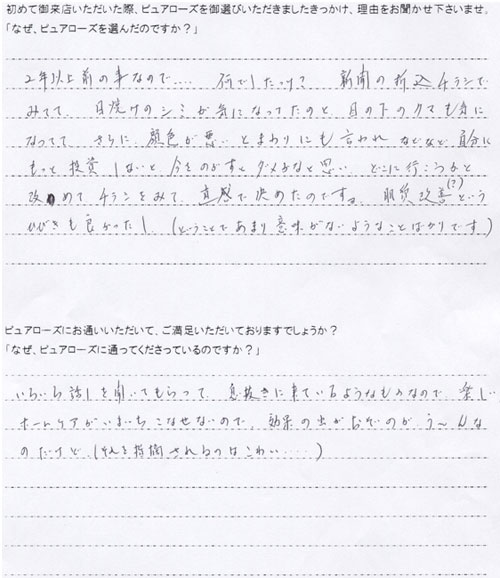 初めて御来店いただいた際、ピュアローズを御選びいただきましたきっかけ、理由をお聞かせ下さいませ。
「なぜ、ピュアローズを選んだのですか？」
2年以上前の事なので.... 何でしたっけ？ 新聞の折込チラシで
みてて、日焼けのシミが気になってたのと、目の下のクマも気に
なってて、さらに、顔色が悪いとまわりにも言われ などなど、自分に
もっと投資しないと 今をのがすとダメかなと思い、どこに行こうかと
改めてチラシをみて、直感で決めたのです。 肌質改善(?)という
ひびきも良かったし (ということであまり意味がないようなことばかりです)
ピュアローズにお通いいただいて、ご満足いただいておりますでしょうか？
「なぜ、ピュアローズに通ってくださっているのですか？」
いろいろ話しを聞いてもらって、息抜きに来ているようなものなので、楽しい
ホームケアがいまいちこなせないので、効果の出がおそいのが、う〜んな
のだけど、(それを指摘されるのはこわい.....)